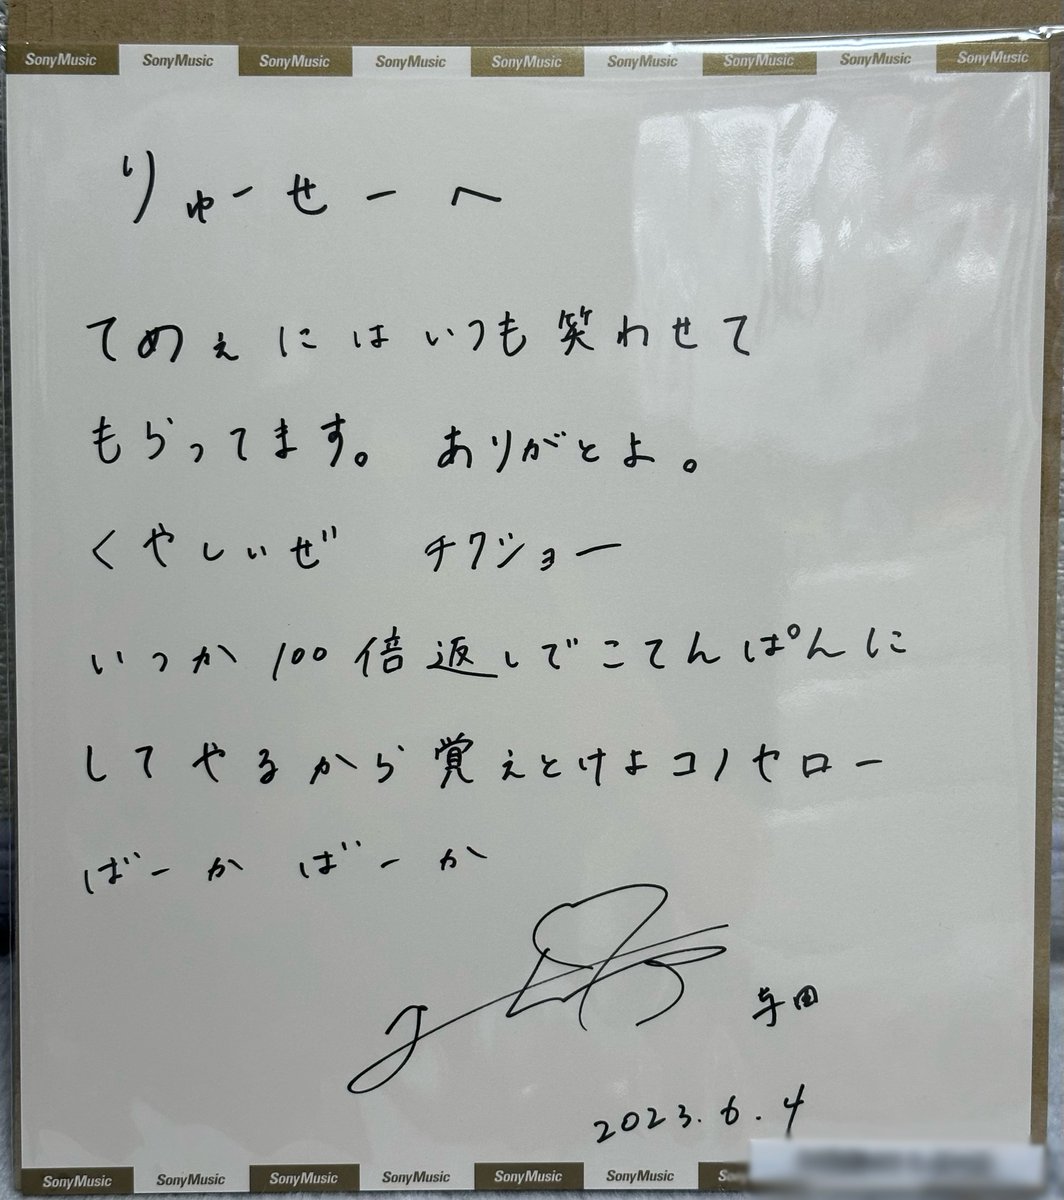 SonyMusic SonyMusic SonyMusic SonyMusic SonyMusic SonyMusic SonyMusic SonyMusic SonyMusic
りゅーせーへ
てめぇにはいつも笑わせて
もらってます。 ありがとよ。
くやしいぜ チクショー
いつか100倍返しでこてんぱんに
してやるから覚えとけよコノヤロー
ばーか ばーか
与田
2023.6.4
SonyMusic SonyMusic SonyMusic SonyMusic SonyMusic SonyMusic